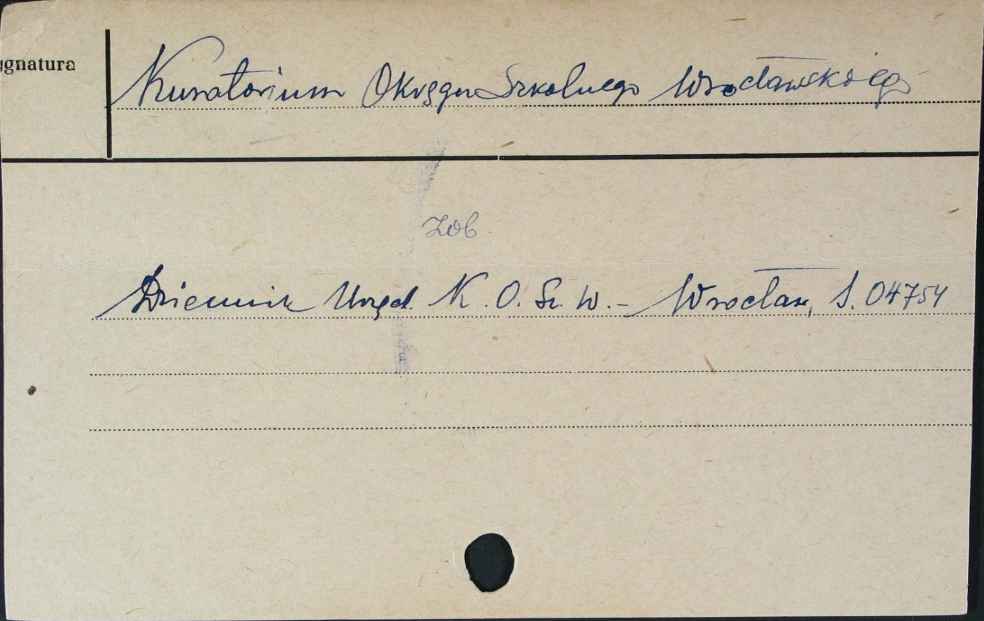 ygnatura
Kuratorium Okręgu Szkolnego Wrocławskiego
Zob
Dziennik Urzęd. K. O. Sz. W. - Wrocław, S. 04754